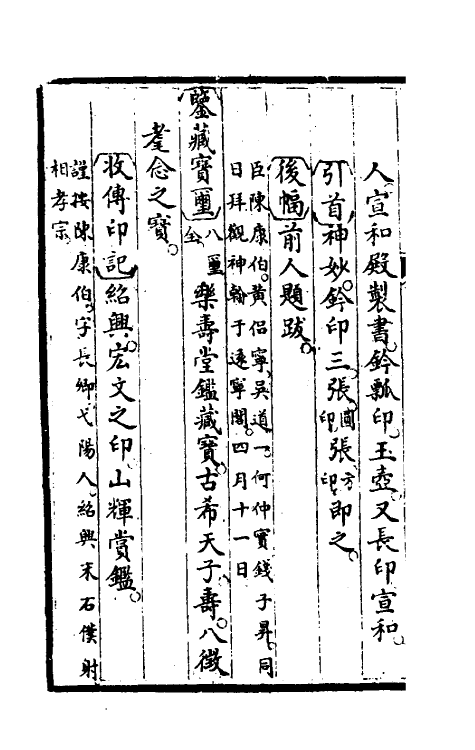 人宣和殿製書鈐瓢印玉壺又長印宣和
引首神妙鈐印三張圓印張方印即之
後幅前人題跋
臣陳康伯黃侶寧吳道一何仲實錢子昇同
日拜觀神翰于遠寧閣四月十一日
鑒藏寶璽八璽全樂壽堂鑑藏寶古希天子壽八徵
耄念之寶
收傳印記紹興宏文之印山輝賞鑑
謹按陳康伯字長卿弋陽人紹興末右僕射
相孝宗